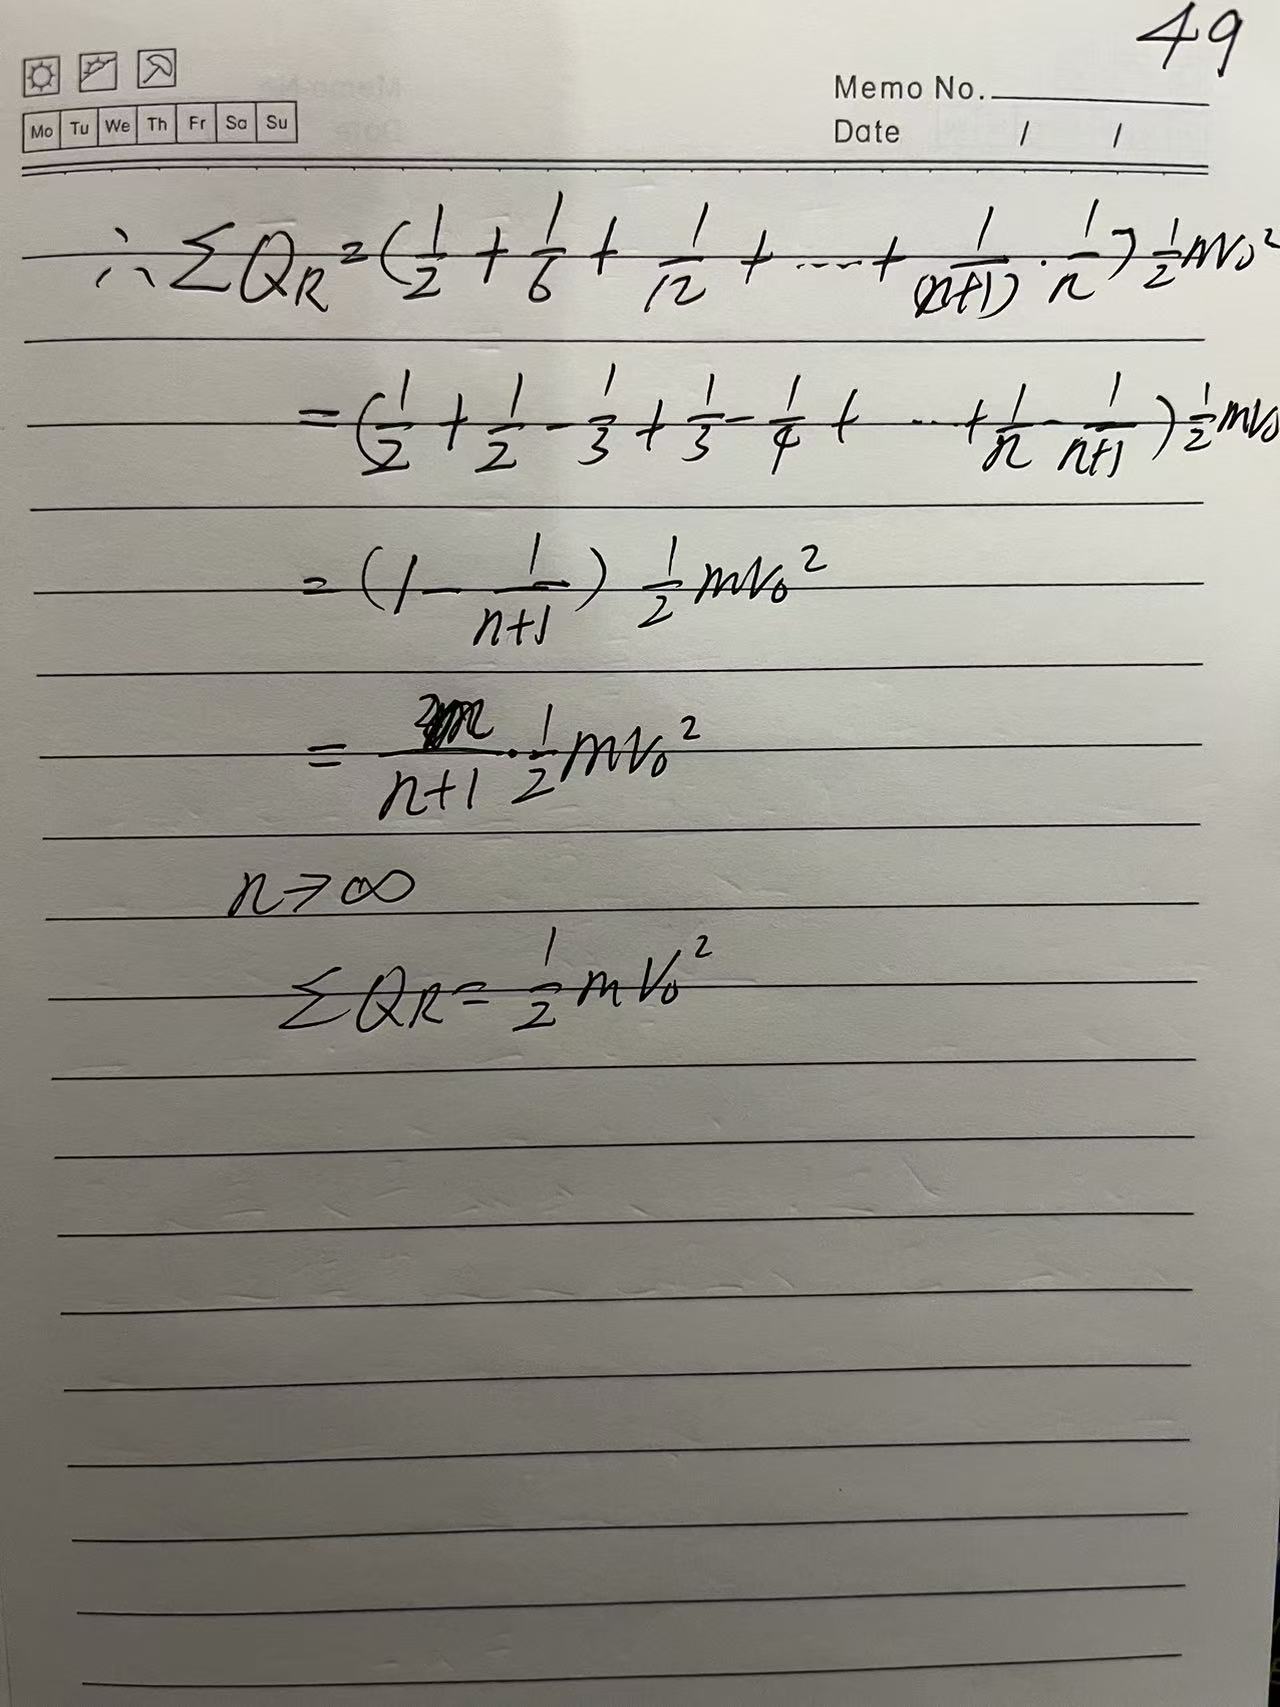 49
Memo No.
Mo Tu We Th Fr Sa Su
Date / /
∴ ΣQR = (1/2 + 1/6 + 1/12 + ······ + 1/(n+1) · 1/n) 1/2 mv₀²
= (1/2 + 1/2 - 1/3 + 1/3 - 1/4 + ··· + 1/n - 1/n+1) 1/2 mv₀
= (1 - 1/n+1) 1/2 mv₀²
= /n+1 · 1/2 mv₀²
n→∞
ΣQR = 1/2 mv₀²